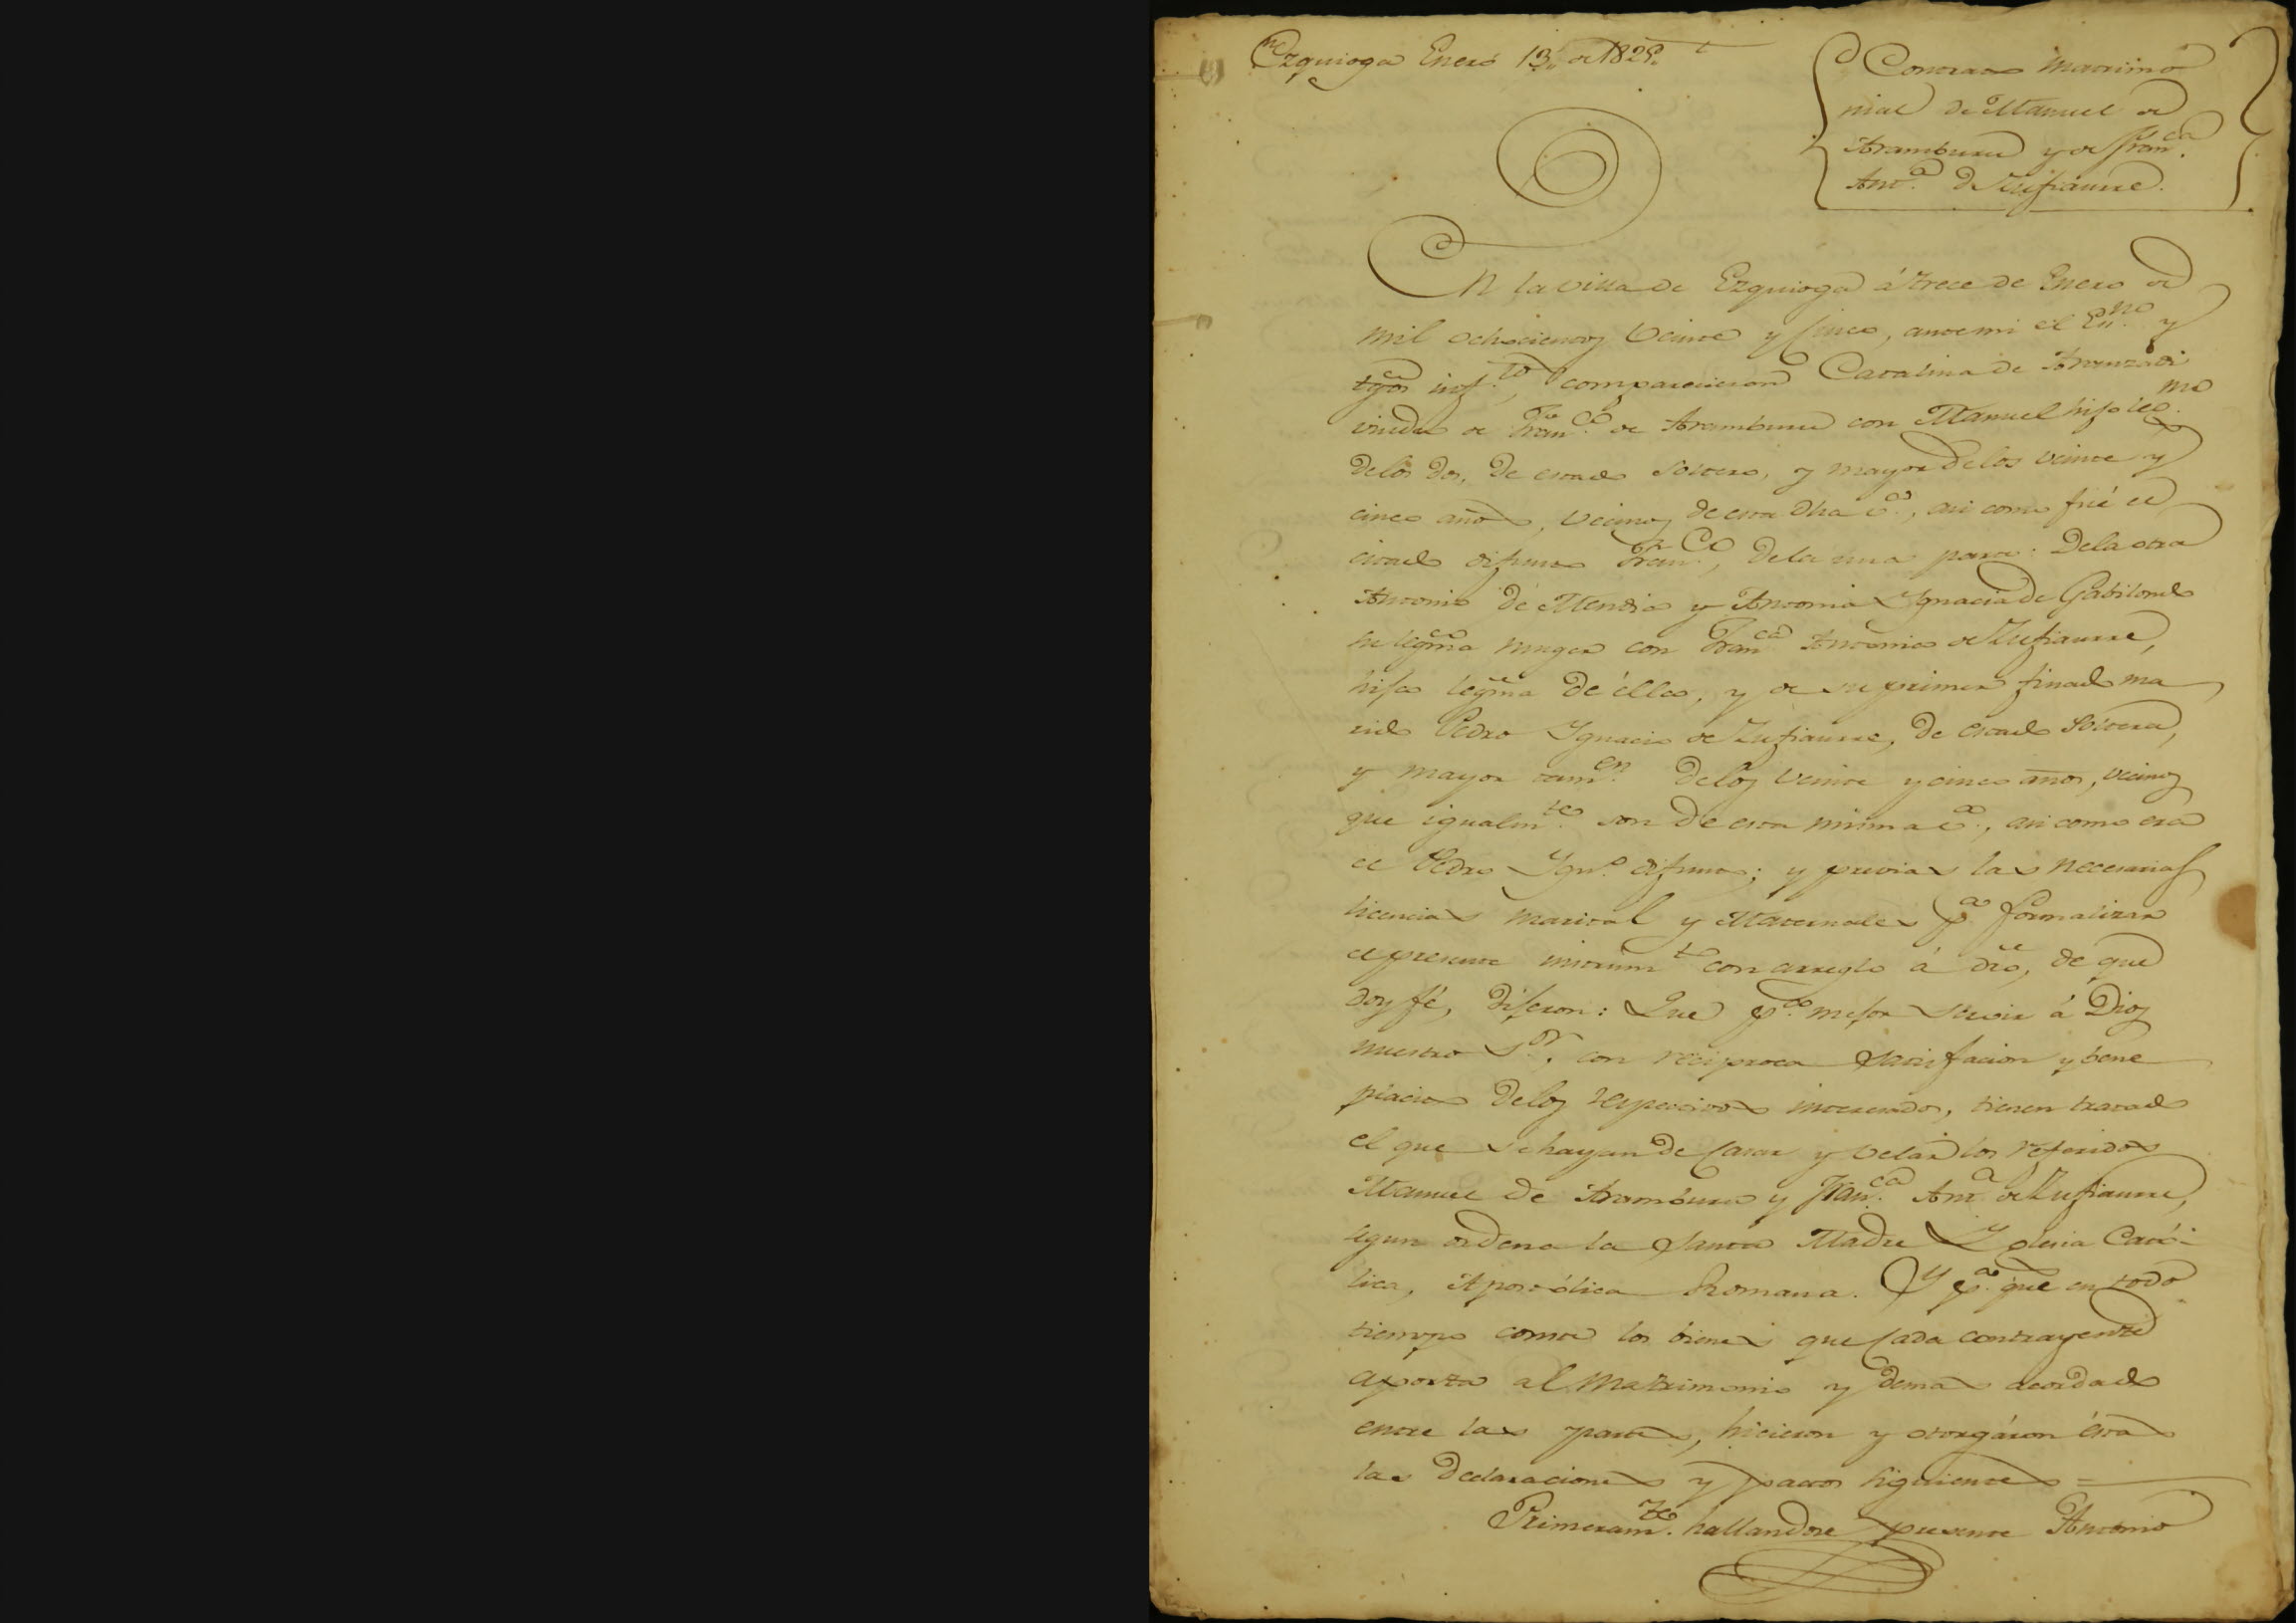 Ezquioga Enero 13,, de 1825.
Contrato Matrimo
nial de Manuel de
Aramburu y de Fran.ca
Ant.a de Zufiaurre.
En la villa de Ezquioga á trece de Enero de
mil ochocientos veinte y cinco, ante mi el Es.no y
tgos inf.tos comparecieron Catalina de Aranzadi
viuda de Fran.co de Aramburu con Manuel hijo leg.mo
de los dos, de estado soltero, y mayor de los veinte y
cinco años, vecinos de esta dha v.a, asi como fué el
citado difunto Fran.co, de la una parte: De la otra
Antonio de Mendia y Antonia Ygnacia de Gabilondo
su legma muger con Fran.ca Antonia de Zufiaurre,
hija legma de élla, y de su primer finado ma
rido Pedro Ygnacio de Zufiaurre, de estado soltera,
y mayor tam.en de los veinte y cinco años, vecinos
que igualm.te son de esta misma v.a, asi como era
el Pedro Ygn.o difunto; y previas las necesarias
licencias marital y Maternales p.a formalizar
el presente instrum.to con arreglo á dro, de que
doy fé, dijeron: Que p.a mejor servir á Dios
nuestro S.or, con reciproca satisfacion y bene
placito de los respectivos interesados, tienen tratado
el que se hayan de casar y velar los referidos
Manuel de Aramburu y Fran.ca Ant.a de Zufiaurre,
segun ordena la Santa Madre Yglesia Cató-
lica, Apostólica Romana. Y p.a que en todo
tiempo conste los bienes que cada contrayente
aporta al Matrimonio y demas acordado
entre las partes, hicieron y otorgáron ésta
las declaraciones y pactos siguientes =
Primeram.te hallandose presente Antonio